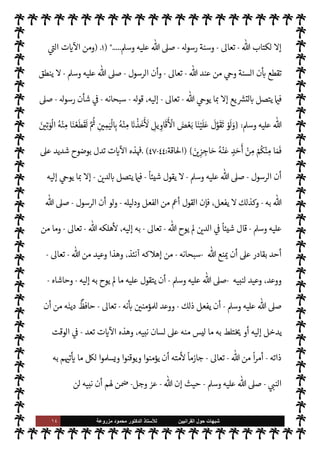 إلا لكتاب الله - تعالى - وسنة رسوله - صلى الله عليه وسلم....". (١) (ومن الآيات التي
تقطع بأن السنة وحي من عند الله - تعالى - وأن الرسول - صلى الله عليه وسلم - لا ينطق
فيما يتصل بالتشريع إلا بما يوحي الله - تعالى - إليه، قوله - سبحانه - في شأن رسوله - صلى
الله عليه وسلم: (وَلَوْ تَقَوَّلَ عَلَيْنَا بَعْضَ الْأَقَاوِيلِ لَأَخَذْنَا مِنْهُ بِالْيَمِينِ ثُمَّ لَقَطَعْنَا مِنْهُ الْوَتِينَ
فَمَا مِنْكُمْ مِنْ أَحَدٍ عَنْهُ حَاجِزِينَ) (الحاقة:٤٤-٤٧) .فهذه الآيات تدل بوضوح شديد على
أن الرسول - صلى الله عليه وسلم - لا يقول شيئاً - فيما يتصل بالدين - إلا بما يوحي إليه
الله به - وكذلك لا يفعل، فإن القول أعم من الفعل ودليله - ولو أن الرسول - صلى الله
عليه وسلم - قال شيئاً في الدين لم يوح الله - تعالى - به إليه، لأهلكه الله - تعالى - وما من
أحد بقادر على أن يمنع الله -سبحانه - من إهلاكه آنئذ، وهذا وعيد من الله - تعالى -
ووعد، وعيد لنبيه -صلى الله عليه وسلم - أن يتقول عليه ما لم يوح به إليه - وحاشاه -
صلى الله عليه وسلم - أن يفعل ذلك - ووعد للمؤمنين بأنه - تعالى - حافظٌ دينه من أن
يدخل إليه أو يختلط به ما ليس منه على لسان نبيه، وهذه الآيات تعد - في الوقت
ذاته - أمراً من الله - تعالى - جازماً لأمته أن يؤمنوا ويوقنوا ويسلموا لكل ما يأتيهم به
النبي - صلى الله عليه وسلم - حيث إن الله - عز وجل- ضمن لهم أن نبيه لن
شبهات حول القرآنيين للأستاذ الدكتور محمود مزروعة ١٤